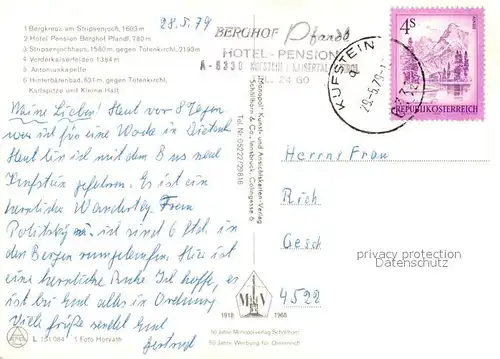 1 Bergkreuz am Stripsenjoch, 1603 m
2 Hotel Pension Berghof Pfandl, 780 m
3 Stripsenjochhaus, 1580 m, gegen Totenkirchl, 2193 m
4 Vorderkaiserfelden 1384 m
5 Antoniuskapelle
6 Hinterbärenbad, 831 m, gegen Totenkirchl,
Karlspitze und Kleine Halt
28.5.79
BERGHOF Pfandl
HOTEL-PENSION
A-6330 KUFSTEIN / KAISERTAL TIROL
TEL. 24 60
KUFSTEIN
29.-5.79
4S
REPUBLIK ÖSTERREICH
Meine Lieben! Heut vor 8 Tagen
war ich für eine Woche in
Heut bin ich mit dem B aus nach
Kufstein gefahren. Es ist ein
herrliche Wandertag. Frau
Politsky u. ich sind 6 Std. in
den Bergen rumgelaufen. Hier ist
eine herrliche Ruhe Ich hoffe, es
ist bei Euch alles in Ordnung
Viele Grüße sendet Euch
Gertrud
Monopol - Kunst- und Ansichtskarten-Verlag
Schöllhorn & Co., Innsbruck, Colingasse 6
Tel. Nr. 05222/29816
Herrn Frau
Rich
Gesch
4522
privacy protection
1918
1968
50 Jahre Monopolverlag Schöllhorn
50 Jahre Werbung für Österreich
L 151 084
1 Foto Horvath